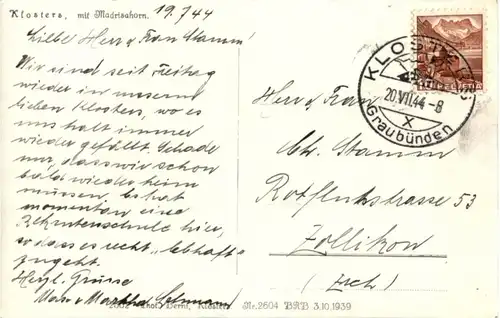 Klosters, mit Madrisahorn. 19.7.44
Liebe Herr & Frau Stamm!
Wir sind seit Freitag
wieder in unserm
lieben Klosters, wo es
uns halt immer
wieder gefällt. Schade
nur, dass wir schon
bald wieder heim
müssen. Es hat
momentan eine
Rekrutenschule hier,
so dass es recht "lebhaft"
zugeht.
Herzl. Grüsse
Martha
KLOSTERS
20.VII.44-8
X
Graubünden
HELVETIA
Herr & Frau
Ch. Stamm
Rotfluhstrasse 53
Zollikon
(Zch)
2602 Phot. Berni, Klosters Nr. 2604 BRB 3.10.1939